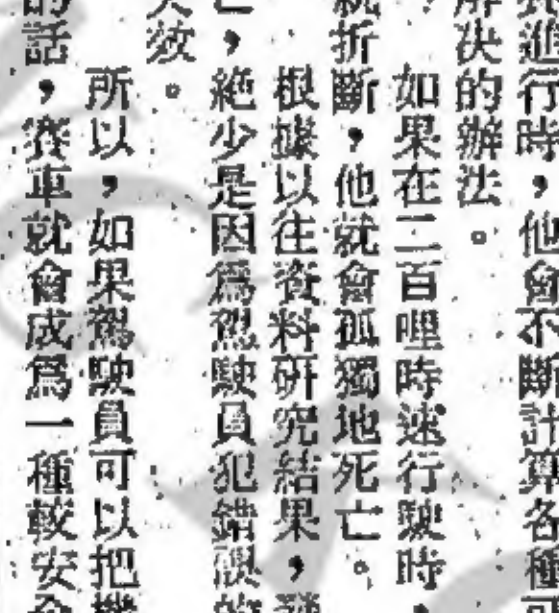 進行時，他會不斷計算各種可
解決的辦法。
如果在二百哩時速行駛時，
就折斷，他就會孤獨地死亡。
根據以往資料研究結果，發
亡，絶少是因爲駕駛員犯錯誤的
失效。
所以，如果駕駛員可以把機
的話，賽車就會成爲一種較安全